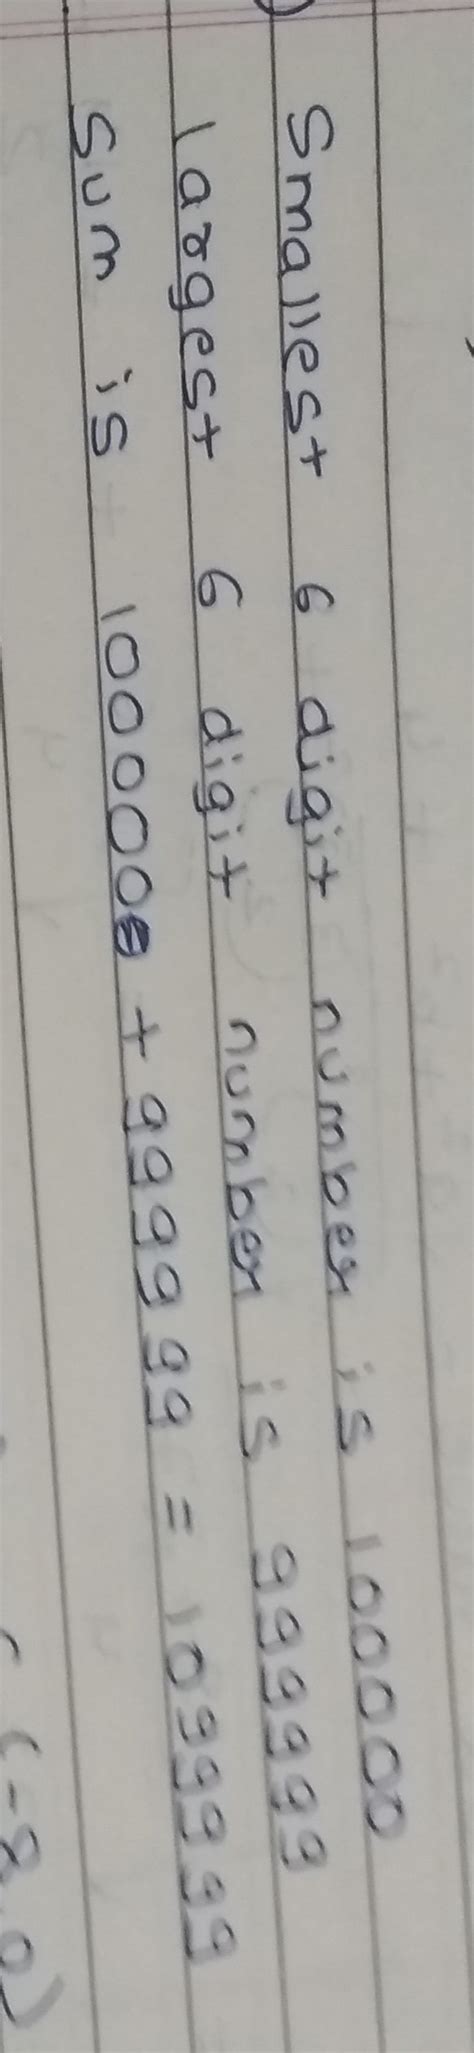 Smallest 6 digit number is 100000
largest 6 digit number is 999999
Sum is 100000 + 999999 = 1099999
(-8,0)